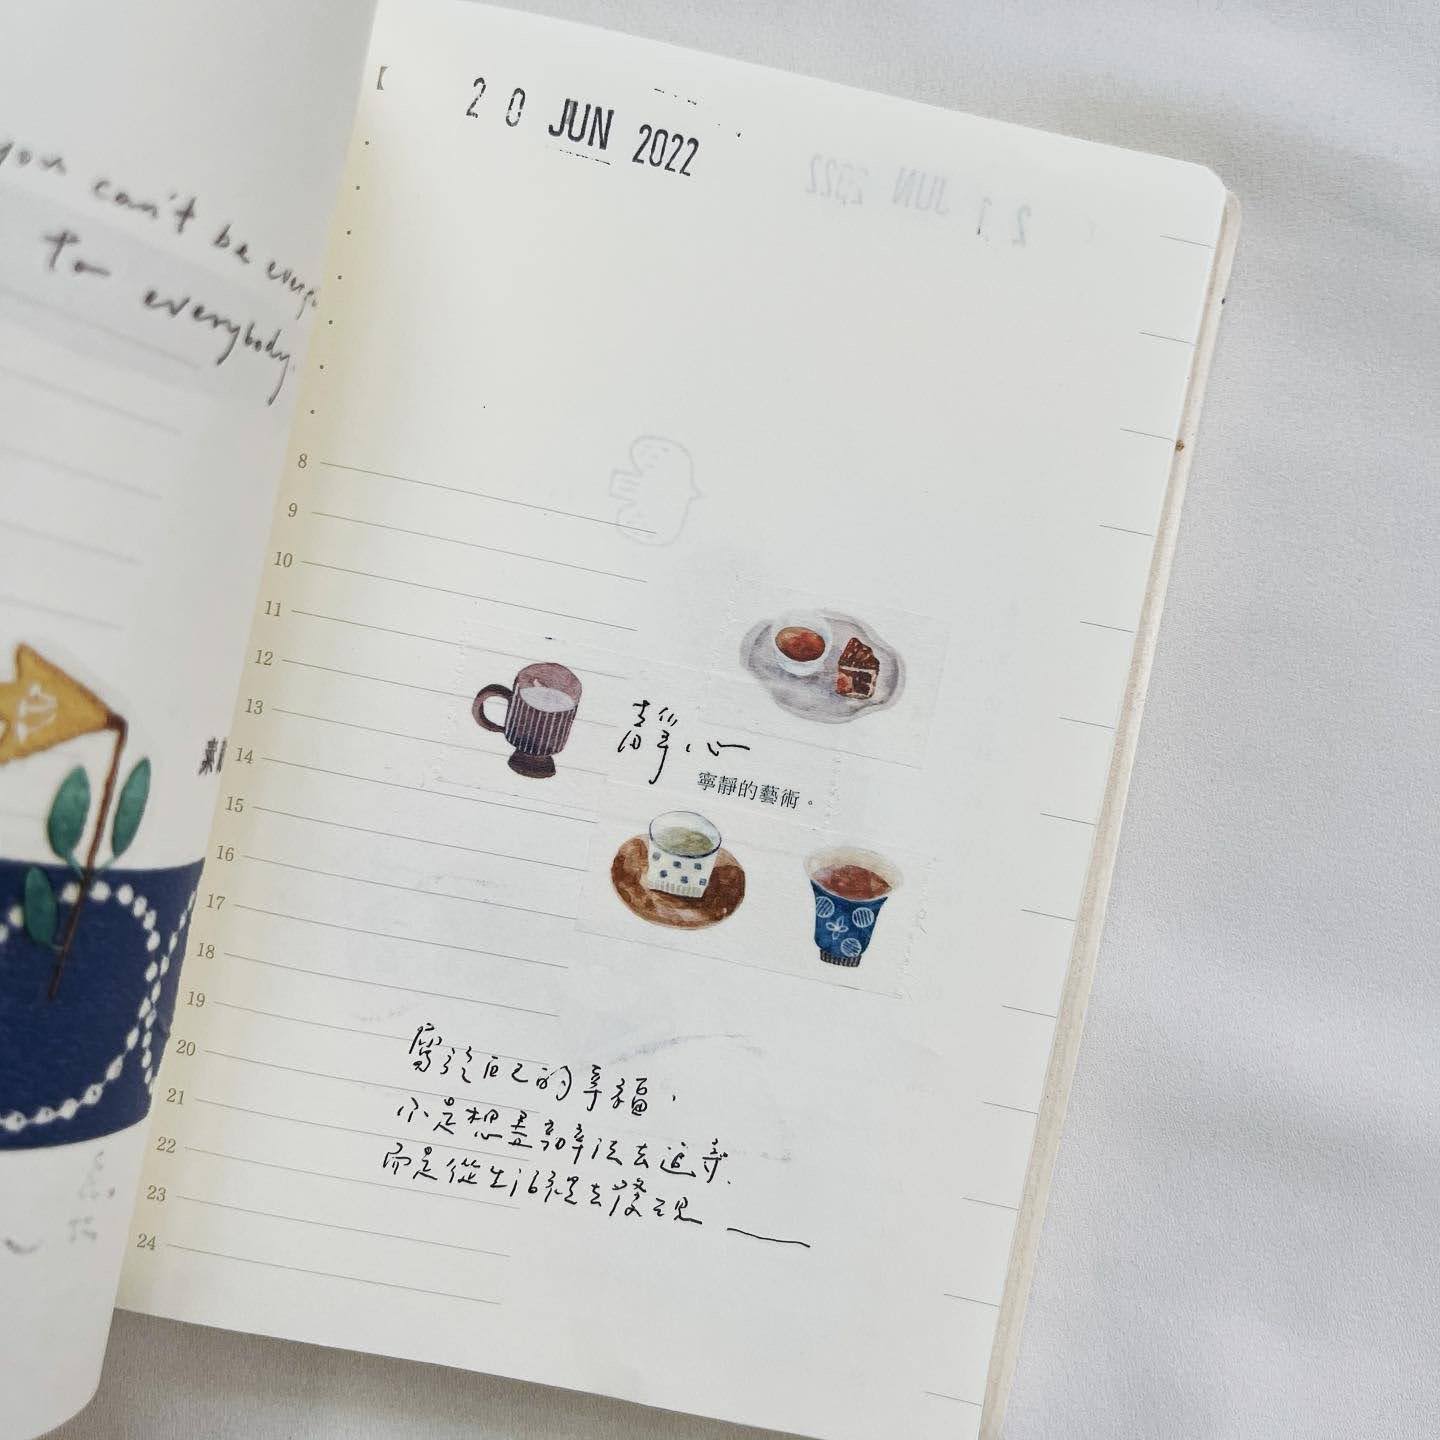 you can't be
to everybody.
20 JUN 2022
21 JUN 2022
8
9
10
11
12
13
14
15
16
17
18
19
20
21
22
23
24
靜心
寧靜的藝術。
屬於自己的幸福,
不是想盡辦法去追尋,
而是從生活裡去發現